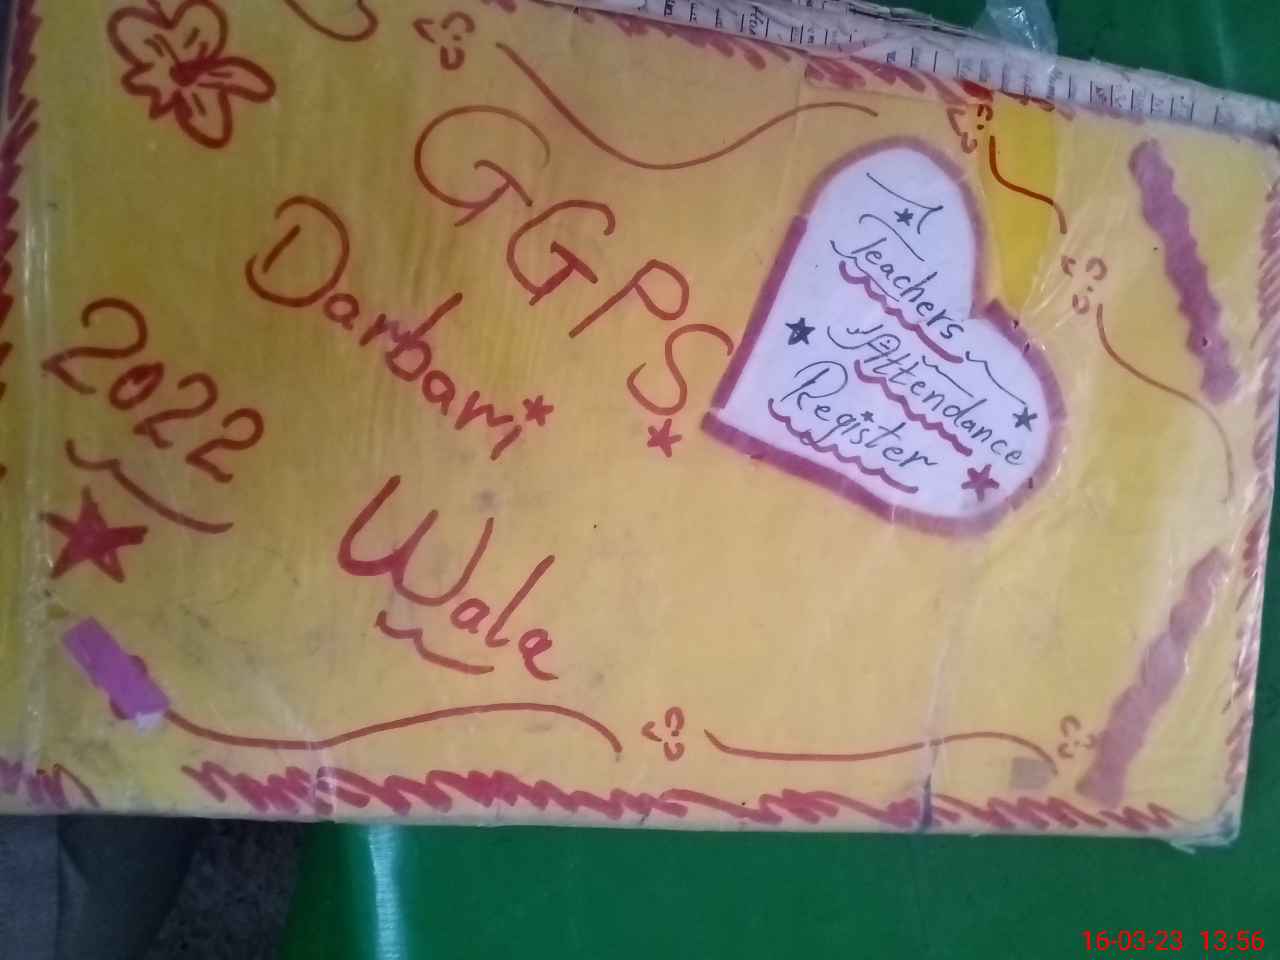 Teachers
Attendance
Register
GGPS
Darbari
Wala
2022
16-03-23 13:56